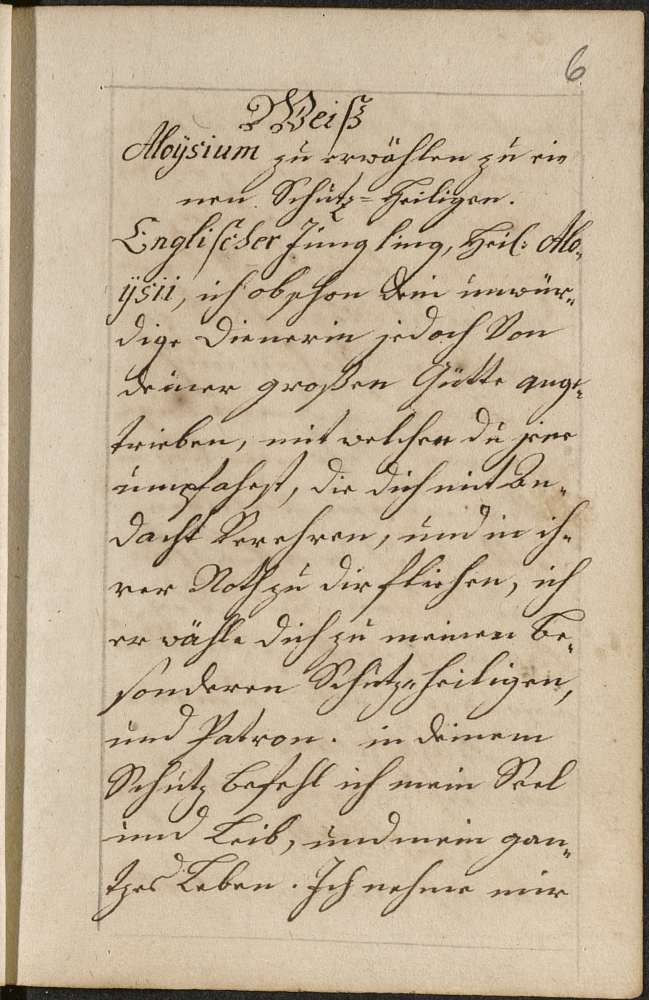 6
Weiß
Aloÿsium zu erwählen zu ein
nen Schutz=Heiligen.
Englischer Jüngling, Heil: Alo„
ÿsii, ich obschon dein unwür„
dige Dienerin jedoch Von
deiner großen Gütte ange„
trieben, mit welcher du jene
umpfahest, die dich mit An„
dacht Verehren, und in ih„
rer Noth zu dir fliehen, ich
erwähle dich zu meinen be„
sonderen Schutz=heiligen,
und Patron. in deinem
Schutz befehl ich mein Seel
und Leib, und mein gan„
tzes Leben. Ich nehme mir